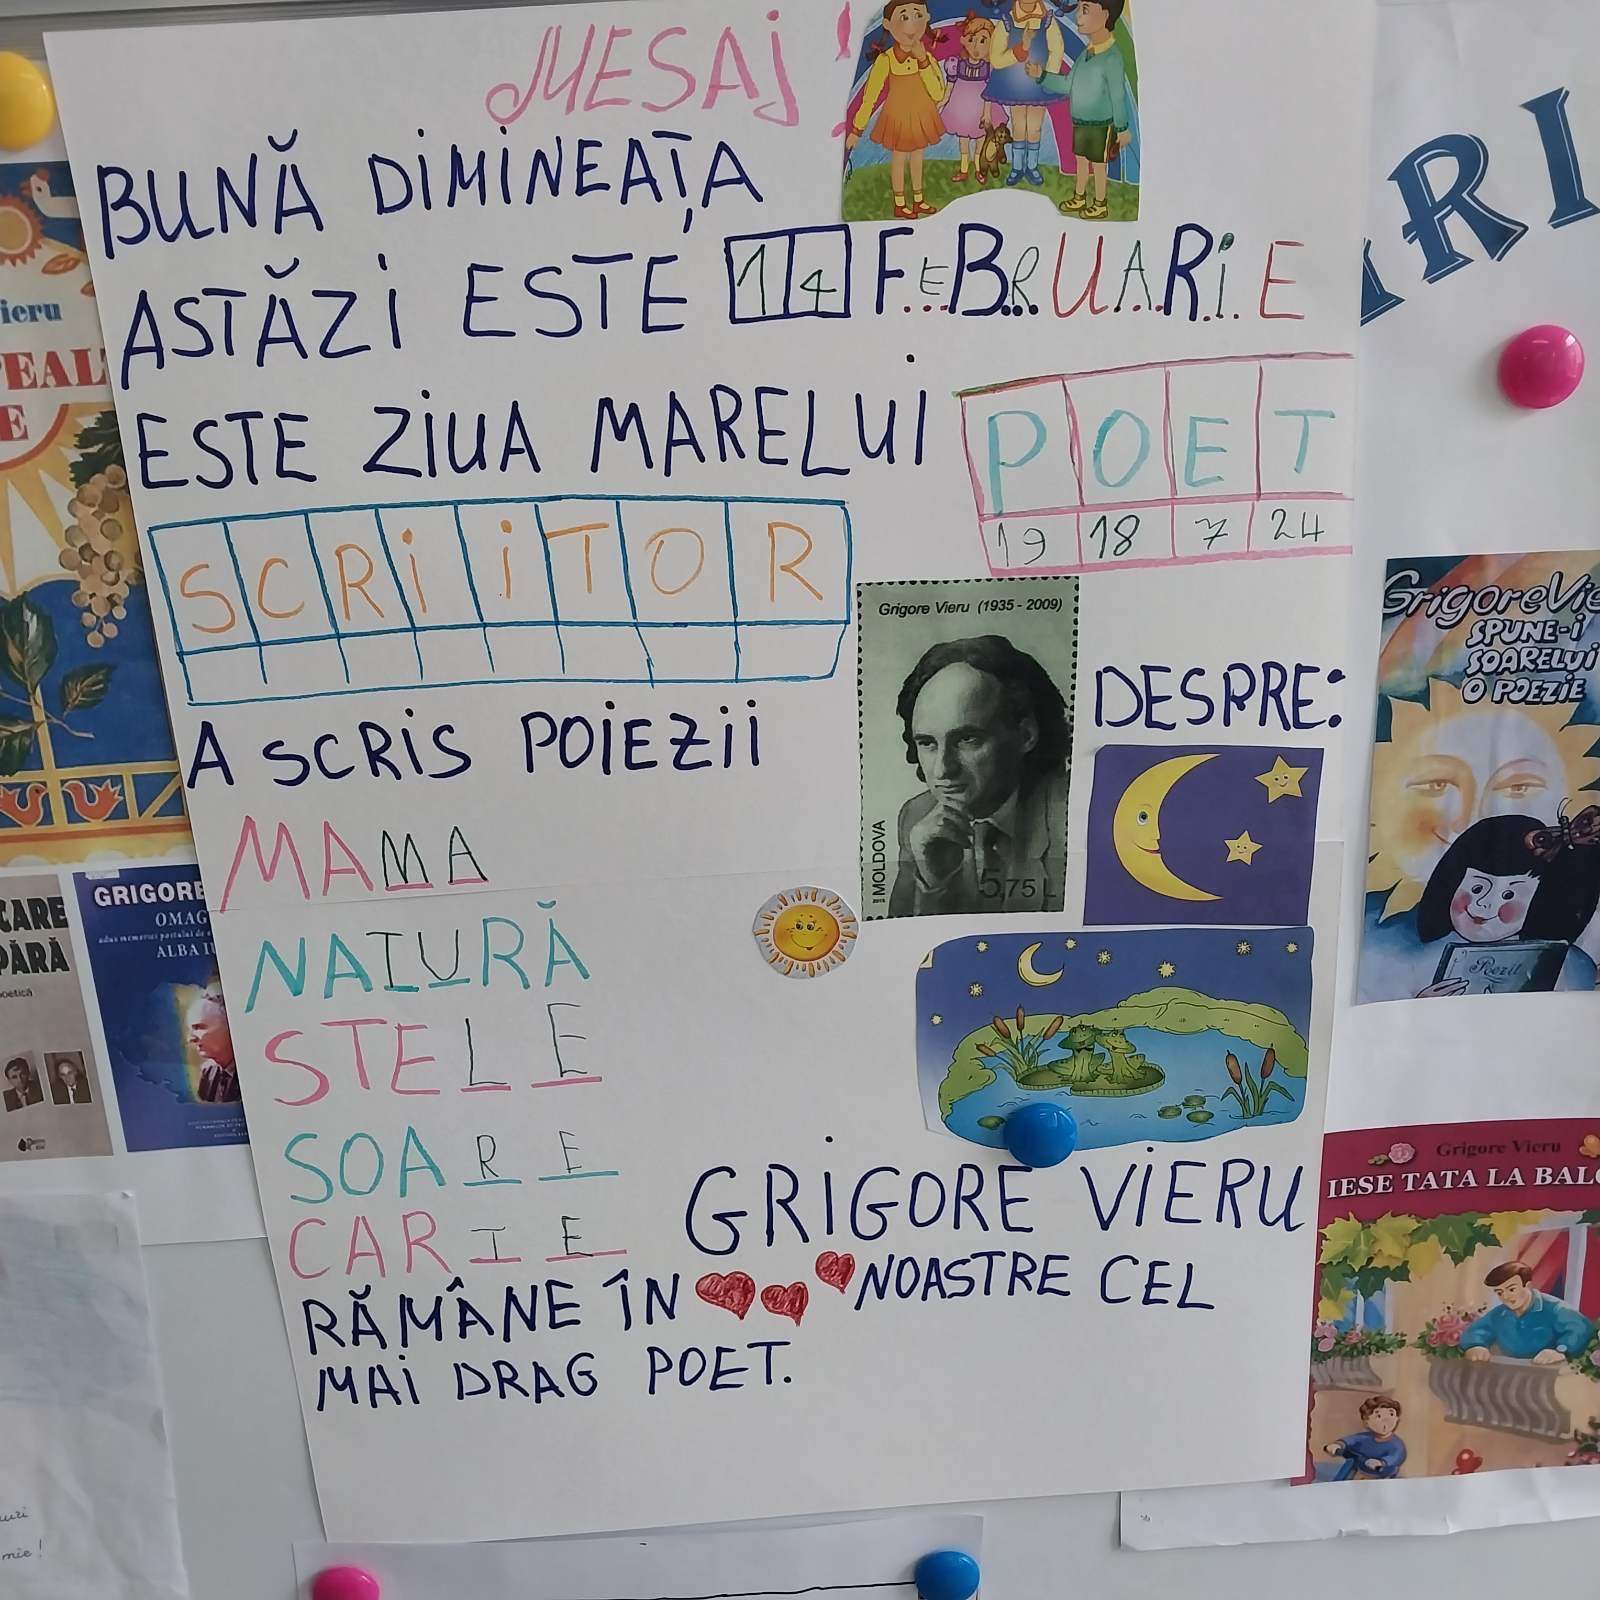 MESAJ!
BUNĂ DIMINEAȚA
ASTĂZI ESTE 14 FEBRUARIE
ESTE ZIUA MARELUI POET
19 18 7 24
SCRIITOR
Grigore Vieru (1935 - 2009)
MOLDOVA
5,75 L
A SCRIS POIEZII
DESPRE:
MAMA
NATURĂ
STELE
SOARE
CARIE
GRIGORE VIERU
RĂMÂNE ÎN NOASTRE CEL
MAI DRAG POET.
ieru
PEAL
E
CARE
PĂRĂ
GRIGORE
OMAG
ALBA IU
RI
Grigore Vie
SPUNE-I
SOARELUI
O POEZIE
Poezii
Grigore Vieru
IESE TATA LA BALC
mie!